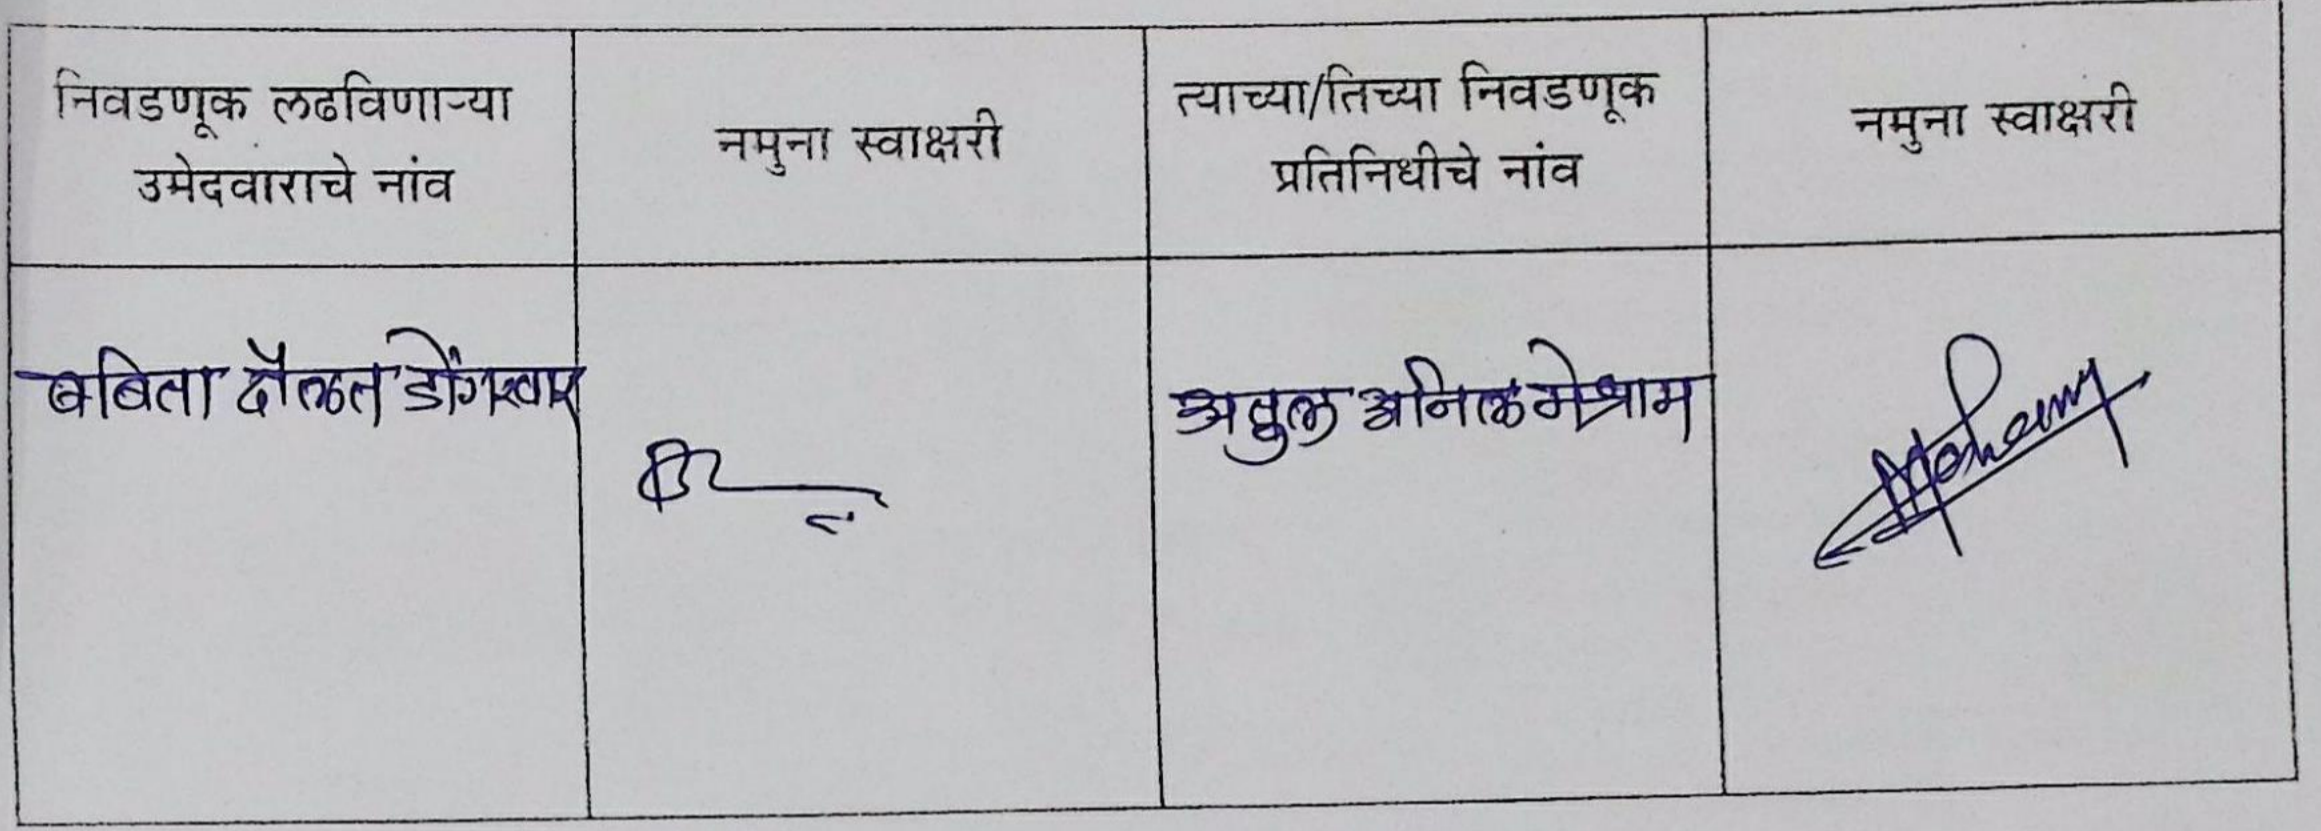 निवडणूक लढविणाऱ्या
उमेदवाराचे नांव
नमुना स्वाक्षरी
त्याच्या/तिच्या निवडणूक
प्रतिनिधीचे नांव
नमुना स्वाक्षरी
बबिता दौलत डोंगरवार
अतुल अनिल मेश्राम